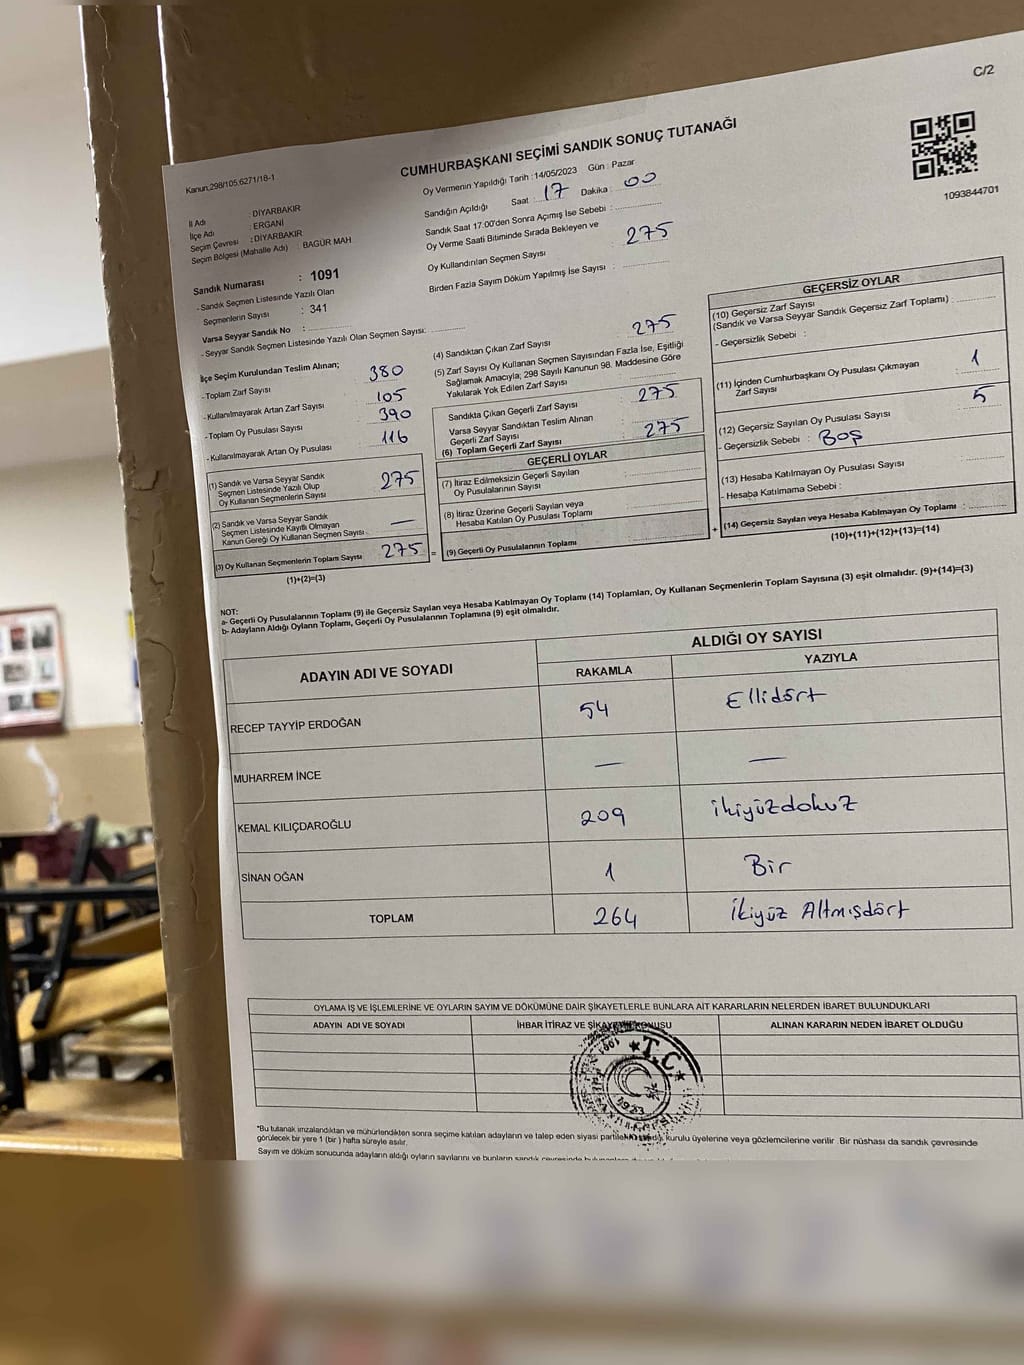 C/2
Kanun;298/105;6271/18-1
CUMHURBAŞKANI SEÇİMİ SANDIK SONUÇ TUTANAĞI
1093844701
İl Adı : DİYARBAKIR
İlçe Adı : ERGANİ
Seçim Çevresi : DİYARBAKIR
Seçim Bölgesi (Mahalle Adı) : BAGÜR MAH
Sandık Numarası : 1091
- Sandık Seçmen Listesinde Yazılı Olan
Seçmenlerin Sayısı : 341
Varsa Seyyar Sandık No :
- Seyyar Sandık Seçmen Listesinde Yazılı Olan Seçmen Sayısı:
Oy Vermenin Yapıldığı Tarih : 14/05/2023 Gün : Pazar
Sandığın Açıldığı Saat : 17 Dakika : 00
Sandık Saat 17:00'den Sonra Açılmış İse Sebebi :
Oy Verme Saati Bitiminde Sırada Bekleyen ve
Oy Kullandırılan Seçmen Sayısı : 275
Birden Fazla Sayım Döküm Yapılmış İse Sayısı :
İlçe Seçim Kurulundan Teslim Alınan;
- Toplam Zarf Sayısı 380
- Kullanılmayarak Artan Zarf Sayısı 105
- Toplam Oy Pusulası Sayısı 390
- Kullanılmayarak Artan Oy Pusulası 116
(1) Sandık ve Varsa Seyyar Sandık
Seçmen Listesinde Yazılı Olup
Oy Kullanan Seçmenlerin Sayısı 275
(2) Sandık ve Varsa Seyyar Sandık
Seçmen Listesinde Kayıtlı Olmayan
Kanun Gereği Oy Kullanan Seçmen Sayısı : —
(3) Oy Kullanan Seçmenlerin Toplam Sayısı 275
(1)+(2)=(3)
(4) Sandıktan Çıkan Zarf Sayısı 275
(5) Zarf Sayısı Oy Kullanan Seçmen Sayısından Fazla İse, Eşitliği
Sağlamak Amacıyla; 298 Sayılı Kanunun 98. Maddesine Göre
Yakılarak Yok Edilen Zarf Sayısı
Sandıkta Çıkan Geçerli Zarf Sayısı 275
Varsa Seyyar Sandıktan Teslim Alınan
Geçerli Zarf Sayısı
(6) Toplam Geçerli Zarf Sayısı 275
GEÇERLİ OYLAR
(7) İtiraz Edilmeksizin Geçerli Sayılan
Oy Pusulalarının Sayısı
(8) İtiraz Üzerine Geçerli Sayılan veya
Hesaba Katılan Oy Pusulası Toplamı
= (9) Geçerli Oy Pusulalarının Toplamı
GEÇERSİZ OYLAR
(10) Geçersiz Zarf Sayısı
(Sandık ve Varsa Seyyar Sandık Geçersiz Zarf Toplamı) :
- Geçersizlik Sebebi :
(11) İçinden Cumhurbaşkanı Oy Pusulası Çıkmayan
Zarf Sayısı 1
(12) Geçersiz Sayılan Oy Pusulası Sayısı 5
- Geçersizlik Sebebi : Boş
(13) Hesaba Katılmayan Oy Pusulası Sayısı
- Hesaba Katılmama Sebebi :
+ (14) Geçersiz Sayılan veya Hesaba Katılmayan Oy Toplamı :
(10)+(11)+(12)+(13)=(14)
NOT:
a- Geçerli Oy Pusulalarının Toplamı (9) ile Geçersiz Sayılan veya Hesaba Katılmayan Oy Toplamı (14) Toplamları, Oy Kullanan Seçmenlerin Toplam Sayısına (3) eşit olmalıdır. (9)+(14)=(3)
b- Adayların Aldığı Oyların Toplamı, Geçerli Oy Pusulalarının Toplamına (9) eşit olmalıdır.
ADAYIN ADI VE SOYADI
ALDIĞI OY SAYISI
RAKAMLA YAZIYLA
RECEP TAYYİP ERDOĞAN 54 Ellidört
MUHARREM İNCE — —
KEMAL KILIÇDAROĞLU 209 ikiyüzdokuz
SİNAN OĞAN 1 Bir
TOPLAM 264 İkiyüz Altmışdört
OYLAMA İŞ VE İŞLEMLERİNE VE OYLARIN SAYIM VE DÖKÜMÜNE DAİR ŞİKAYETLERLE BUNLARA AİT KARARLARIN NELERDEN İBARET BULUNDUKLARI
ADAYIN ADI VE SOYADI İHBAR İTİRAZ VE ŞİKAYETİN KONUSU ALINAN KARARIN NEDEN İBARET OLDUĞU
T.C
1923
*Bu tutanak imzalandıktan ve mühürlendikten sonra seçime katılan adayların ve talep eden siyasi kurulu üyelerine veya gözlemcilerine verilir. Bir nüshası da sandık çevresinde
görülecek bir yere 1 (bir) hafta süreyle asılır.
Sayım ve döküm sonucunda adayların aldığı oyların sayılarını ve bunların sandık çevresinde